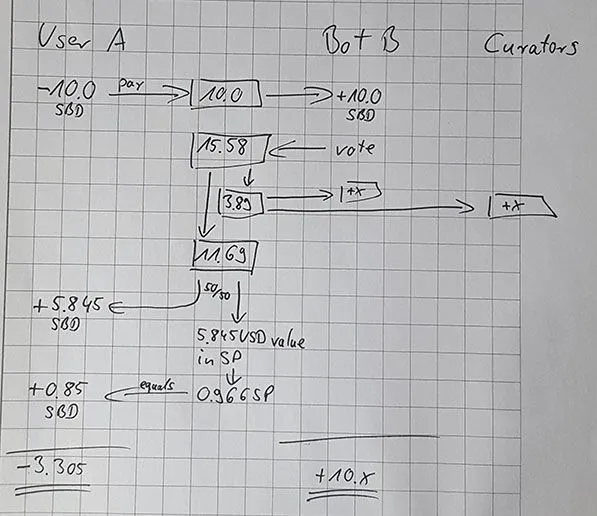 User A Bot B Curators
-10.0 pay 10.0 +10.0
SBD SBD
15.58 vote
3.89 +x +x
11.69
50/50
+5.845
SBD
5.845 USD value
in SP
+0.85 equals 0.966 SP
SBD
-3.305 +10.x